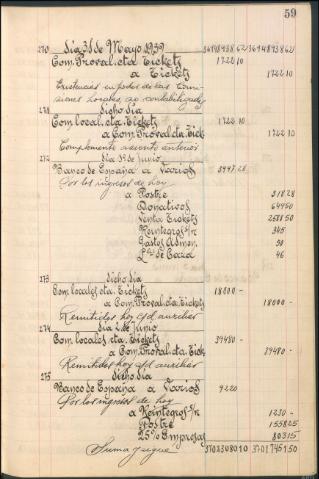 59
270 día 31 de Mayo 1939 3614893862 3614893862
Com. Proval. cta. Tickets 172210
a Tickets 172210
Existencias en poder de las Comi-
siones locales, no contabilizadas
271 dicho día
Com. local. cta. Tickets 172210
a Com. Proval. cta. Tick. 172210
Complemento asiento anterior
272 día 1º de junio
Banco de España a Varios
Por los ingresos de hoy
a Postre 21828
Donativos 64950
Venta Tickets 258850
Reintegros
Gastos Admon. 90
L. de Caza 46
273 dicho día
Com. locales cta. Tickets 18000 -
a Com. Proval. cta. Tickets 18000 -
Remitidos hoy s/d auxiliar
274 día 2 de junio
Com. locales cta. Tickets 39480 -
a Com. Proval. cta. Tick. 39480 -
Remitidos hoy s/d auxiliar
275 dicho día
Banco de España a Varios 9220
Por los ingresos de hoy
a Reintegros 1230 -
Postre 155825
25% Empresas 80315
Suma y sigue